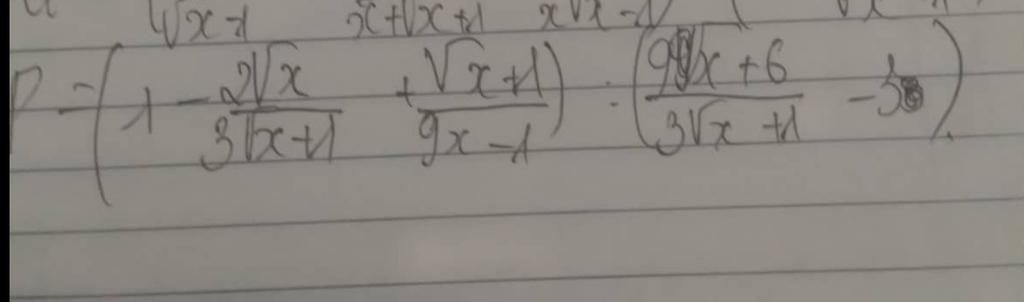 √x-1 x+√x+1 x√x-1
P = (1 - 2√x/(3√x+1) + (√x+1)/(9x-1)) : ((9√x+6)/(3√x+1) - 3)